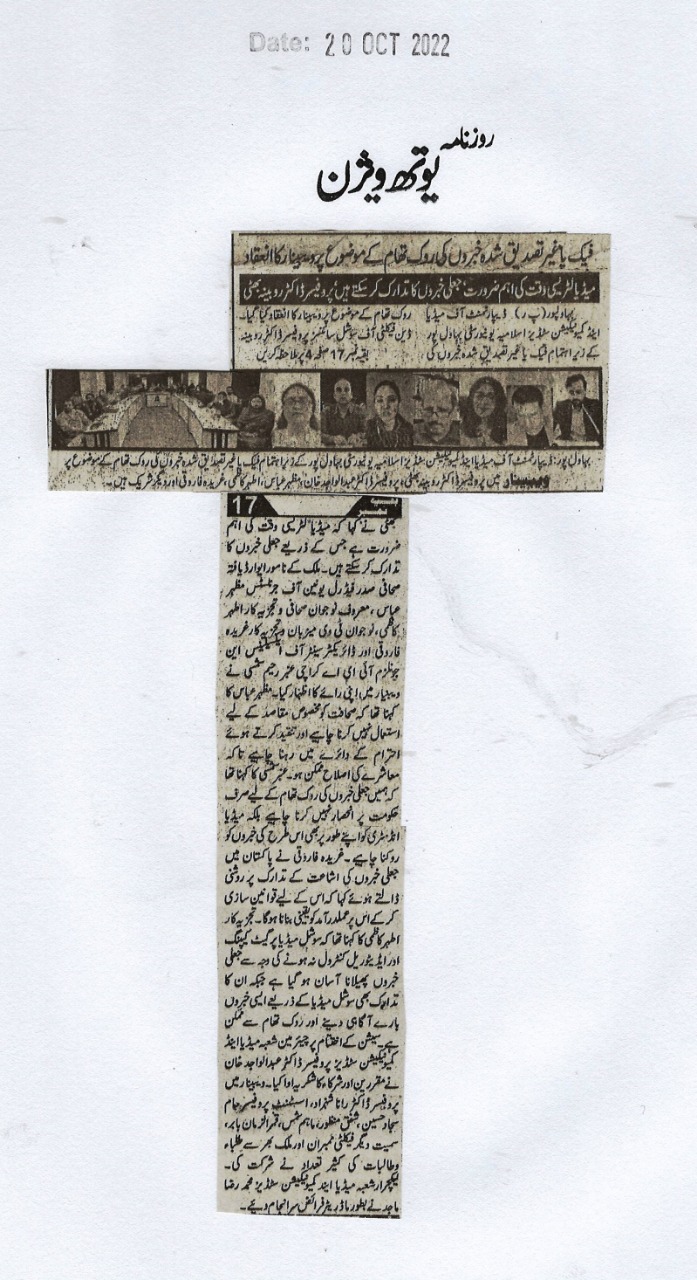 Date: 20 OCT 2022
روزنامہ
یوتھ ویژن
فیک یا غیر تصدیق شدہ خبروں کی روک تھام کے موضوع پر ویبینار کا انعقاد
میڈیا لٹریسی وقت کی اہم ضرورت، جعلی خبروں کا تدارک کر سکتے ہیں، پروفیسر ڈاکٹر روبینہ بھٹی
بہاولپور (پ ر) ڈیپارٹمنٹ آف میڈیا
اینڈ کمیونیکیشن سٹڈیز اسلامیہ یونیورسٹی بہاول پور
کے زیر اہتمام فیک یا غیر تصدیق شدہ خبروں کی
روک تھام کے موضوع پر ویبینار کا انعقاد کیا گیا۔
ڈین فیکلٹی آف سوشل سائنسز پروفیسر ڈاکٹر روبینہ
بقیہ نمبر 17 صفحہ 4 پر ملاحظہ کریں
بہاول پور: ڈیپارٹمنٹ آف میڈیا اینڈ کمیونیکیشن سٹڈیز اسلامیہ یونیورسٹی بہاول پور کے زیر اہتمام فیک یا غیر تصدیق شدہ خبروں کی روک تھام کے موضوع پر
ویبینار میں پروفیسر ڈاکٹر روبینہ بھٹی، پروفیسر ڈاکٹر عبدالواجد خان، مظہر عباس، اطہر کاظمی، غریدہ فاروقی اور دیگر شریک ہیں۔
بقیہ نمبر 17
بھٹی نے کہا کہ میڈیا لٹریسی وقت کی اہم
ضرورت ہے جس کے ذریعے جعلی خبروں کا
تدارک کر سکتے ہیں۔ ملک کے نامور ایوارڈ یافتہ
صحافی صدر فیڈرل یونین آف جرنلسٹس مظہر
عباس، معروف نوجوان صحافی و تجزیہ کار اطہر
کاظمی، نوجوان ٹی وی میزبان و تجزیہ کار غریدہ
فاروقی اور ڈائریکٹر سینٹر آف ایکسیلینس ان
جرنلزم آئی بی اے کراچی عنبر رحیم شمسی نے
ویبینار میں اپنی رائے کا اظہار کیا۔ مظہر عباس کا
کہنا تھا کہ صحافت کو مخصوص مقاصد کے لیے
استعمال نہیں کرنا چاہیے اور تنقید کرتے ہوئے
احترام کے دائرے میں رہنا چاہیے تاکہ
معاشرے کی اصلاح ممکن ہو۔ عنبر شمسی کا کہنا تھا
کہ ہمیں جعلی خبروں کی روک تھام کے لیے صرف
حکومت پر انحصار نہیں کرنا چاہیے بلکہ میڈیا
انڈسٹری کو اپنے طور پر بھی اس طرح کی خبروں کو
روکنا چاہیے۔ غریدہ فاروقی نے پاکستان میں
جعلی خبروں کی اشاعت کے تدارک پر روشنی
ڈالتے ہوئے کہا کہ اس کے لیے قوانین سازی
کر کے اس پر عملدرآمد کو یقینی بنانا ہوگا۔ تجزیہ کار
اطہر کاظمی کا کہنا تھا کہ سوشل میڈیا پر گیٹ کیپنگ
اور ایڈیٹوریل کنٹرول نہ ہونے کی وجہ سے جعلی
خبروں پھیلانا آسان ہو گیا ہے جبکہ ان کا
تدارک بھی سوشل میڈیا کے ذریعے ایسی خبروں
بارے آگاہی دینے اور روک تھام سے ممکن
ہے۔ سیشن کے اختتام پر چیئرمین شعبہ میڈیا اینڈ
کمیونیکیشن سٹڈیز پروفیسر ڈاکٹر عبدالواجد خان
نے مقررین اور شرکاء کا شکریہ ادا کیا۔ ویبینار میں
پروفیسر ڈاکٹر رانا شہزاد، اسسٹنٹ پروفیسر جام
سجاد حسین، شفق منظور، ماہم شمس، قمر الزمان بابر،
سمیت دیگر فیکلٹی ممبران اور ملک بھر سے طلباء
و طالبات کی کثیر تعداد نے شرکت کی۔
لیکچرار شعبہ میڈیا اینڈ کمیونیکیشن سٹڈیز محمد رضا
ماجد نے بطور ماڈریٹر فرائض سرانجام دیئے۔